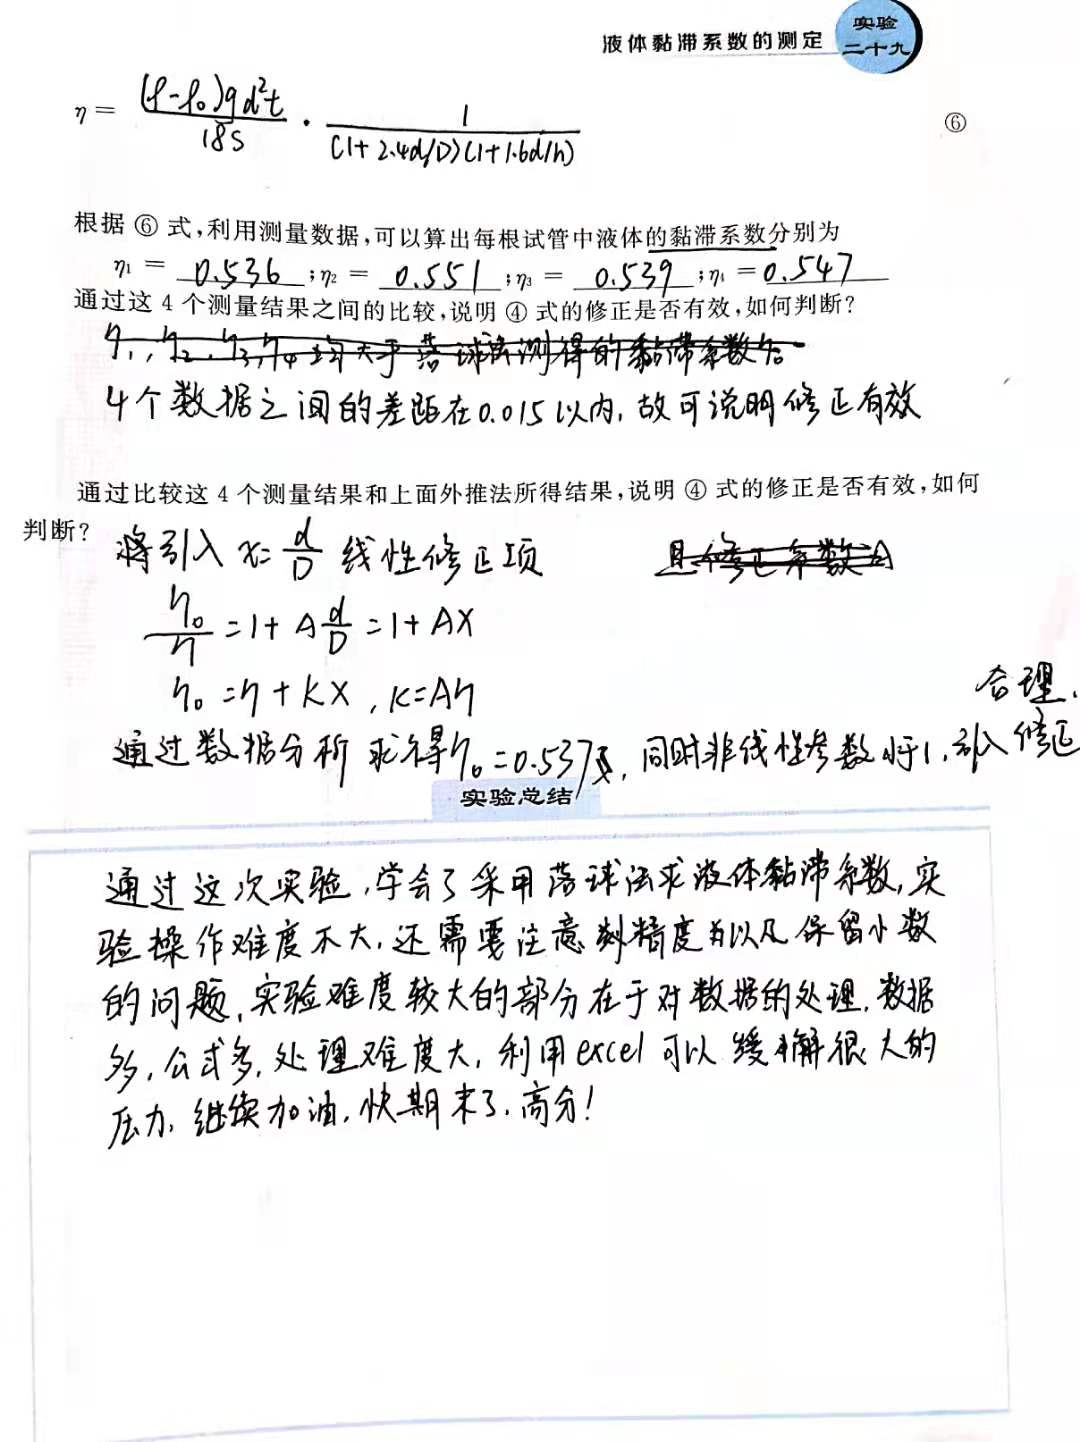 液体黏滞系数的测定
实验
二十九
η = (ρ-ρ₀)gd²t / 18S · 1 / (1+2.4d/D)(1+1.6d/h) ⑥
根据 ⑥ 式,利用测量数据,可以算出每根试管中液体的黏滞系数分别为
η₁ = 0.536 ;η₂ = 0.551 ;η₃ = 0.539 ;η₄ = 0.547
通过这 4 个测量结果之间的比较,说明 ④ 式的修正是否有效,如何判断?
η₁,η₂,η₃,η₄均大于落球法测得的黏滞系数
4个数据之间的差距在0.015以内,故可说明修正有效
通过比较这 4 个测量结果和上面外推法所得结果,说明 ④ 式的修正是否有效,如何
判断?
将引入 x= d/D 线性修正项
且修正系数
η₀/η =1+A d/D =1+AX
η₀=η+KX,K=Aη
通过数据分析求得η₀=0.537 ,同时非线性参数小于1,引入修正
合理.
实验总结
通过这次实验,学会了采用落球法求液体黏滞系数,实
验操作难度不大,还需要注意 精度 以及保留小数
的问题,实验难度较大的部分在于对数据的处理,数据
多,公式多,处理难度大,利用excel可以缓解很大的
压力,继续加油,快期末了,高分!